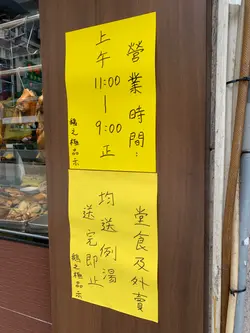 營業時間:
上午11:00—9:00正
鵝之極品示
堂食及外賣
均送例湯
送完即止
鵝之極品示